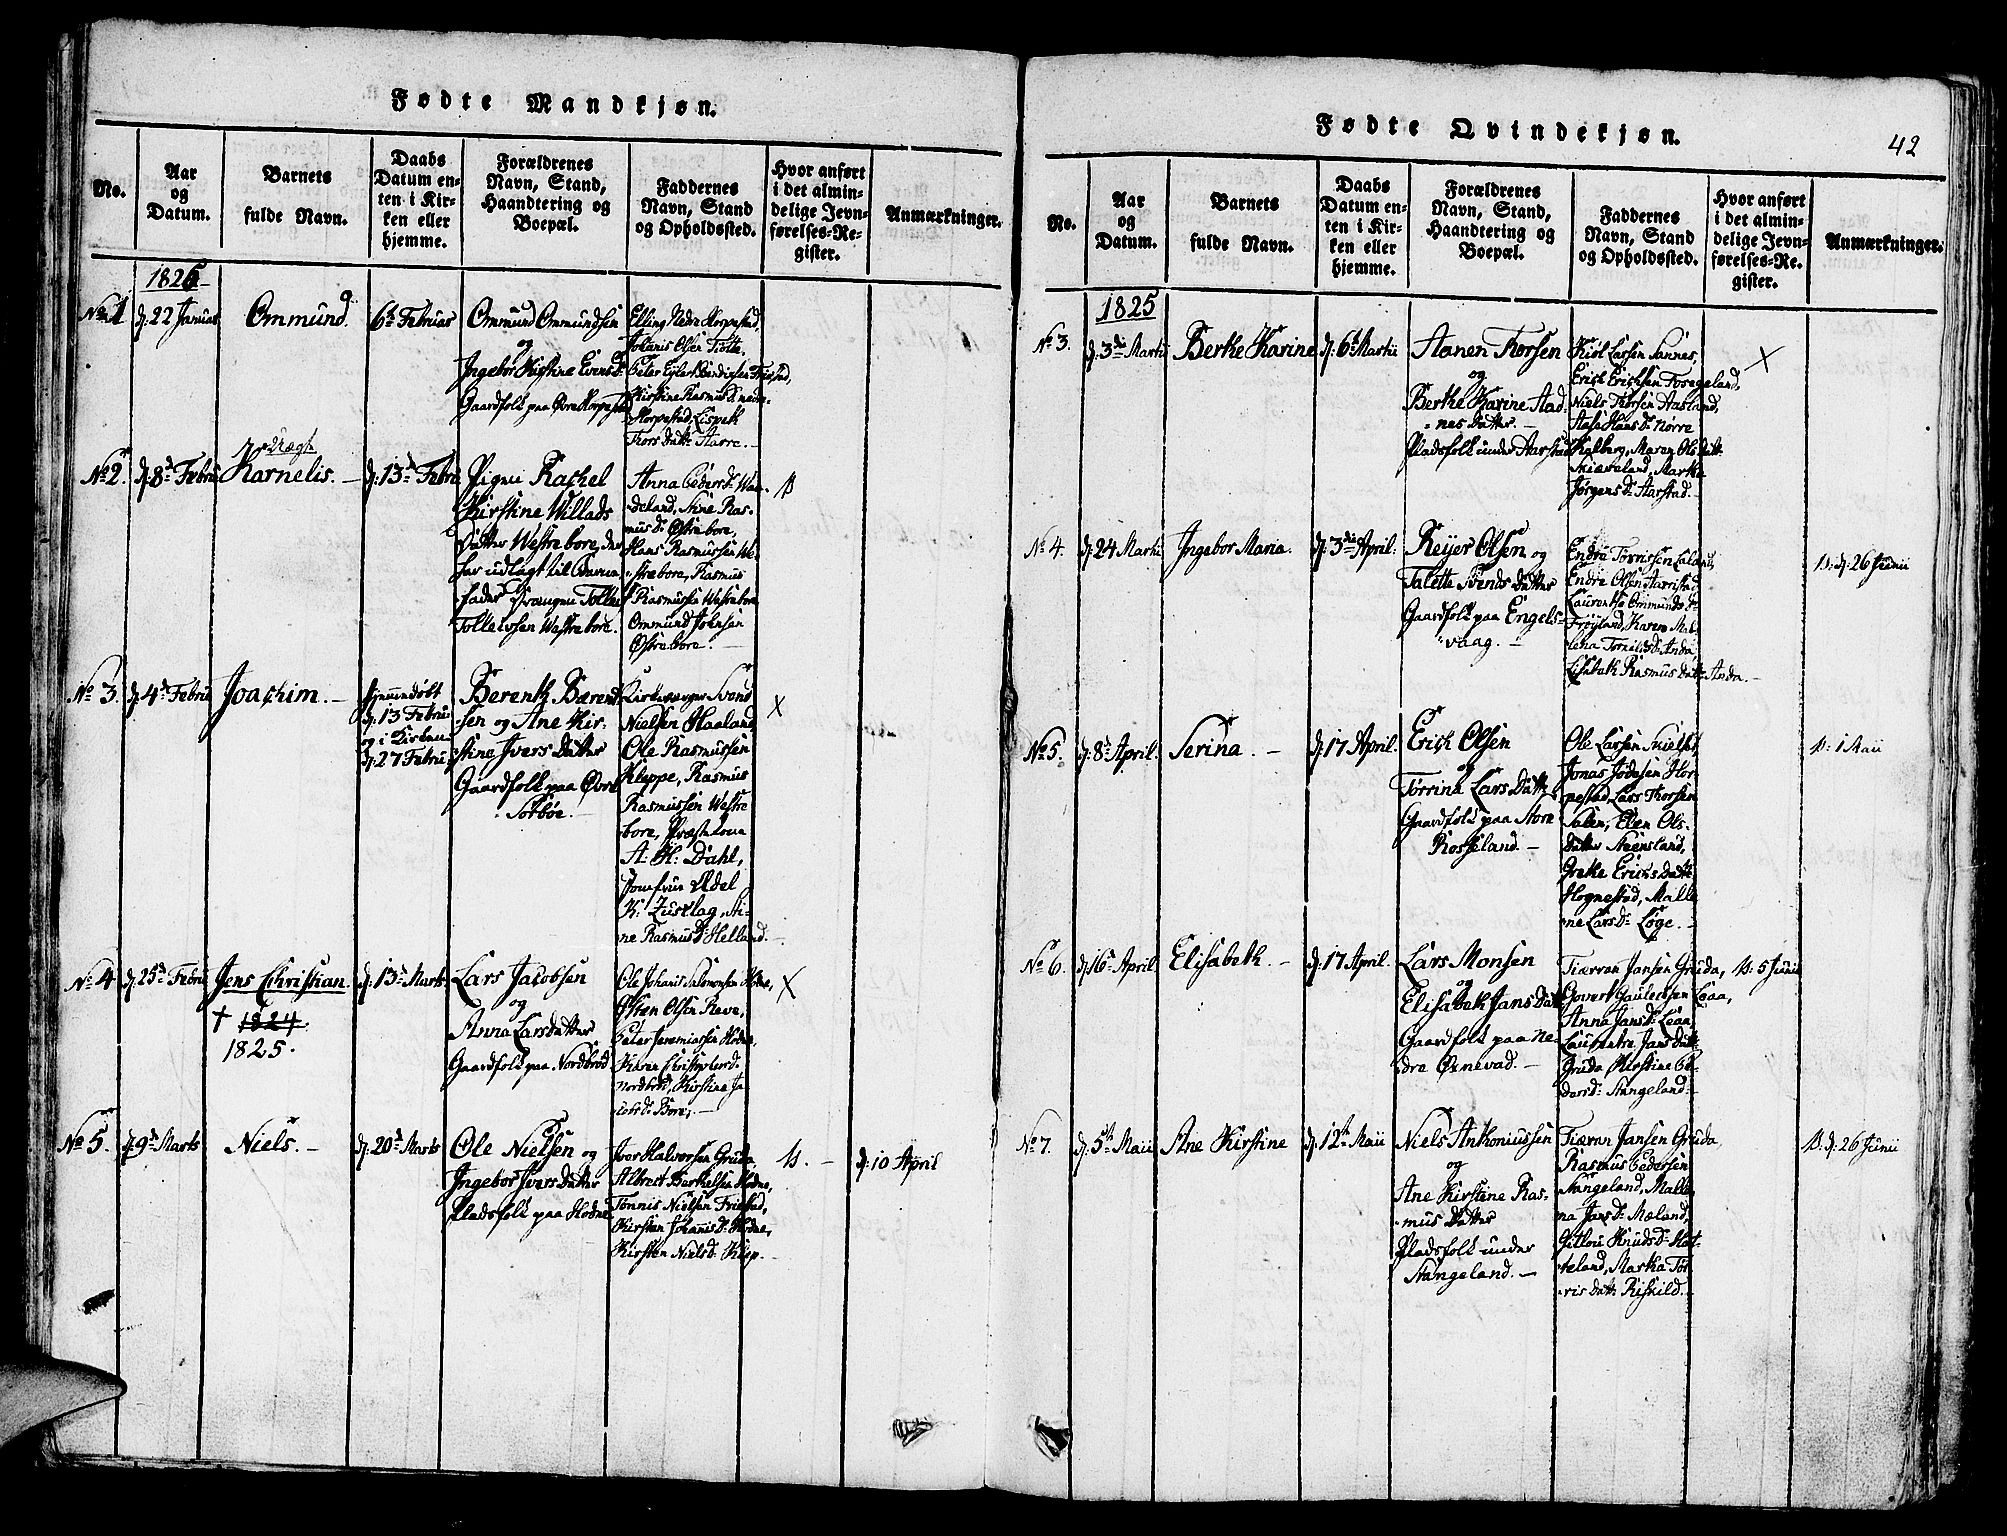 Fødte Mandkjøn.
No.
Aar
og
Datum.
Barnets
fulde Navn.
Daabs
Datum en-
ten i Kir-
ken eller
hjemme.
Forældrenes
Navn, Stand,
Haandtering og
Boepæl.
Faddernes
Navn, Stand
og Opholdssted.
Hvor anført
i det almin-
delige Jevn-
førelses-Re-
gister.
Anmærkninger.
1825
No 1
d. 22 Januar
Ommund.
6te Februar
Ommund Ommundsen
og
Ingebor Kistine Evens D.
Gaardfolk paa Øvre Horpestad
Elling Nedre Horpestad,
Johanis Olsen Tiøtte,
Peder Eyler Bendigsen Friestad,
Kirstine Rasmus D. nedre
Horpestad, Lispeth
Tors Datter Aarre.
No 2.
d. 8de Febru
Uægte
Kornelis. –
d. 13de Febru
Pigen Rachel
Kirstine Willads
Datter Westrebore, der
har udlagt til Barne
fader Drængen Tolle
Tollevsen Westrebore.
Anna Peders D. Wau-
deland, Stine Ras-
mus D. Østrebore,
Hans Rasmussen We-
strebore, Rasmus
Rasmussen Westrebore
Ommund Johnsen
Østrebore. –
No 3.
d. 4de Febru
Joachim. –
hjemmedøbt
d. 13 Febru
og i Kirken
d. 27 Febru
Berenth Bærent
sen og Ane Kir-
stine Ivers Datter
Gaardfolk paa Øvre
Sørbøe.
Kirkeværger Svend
Nielsen Haaland
Ole Rasmussen
Kleppe, Rasmus
Rasmussen Westre
bore, Præstekone
A: H: Dahl,
Jomfrue Edel
K: Zuslag, Sti-
ne Rasmus D. Helland.
X
No 4
d. 25de Febru
Jens Christian.
† 1824.
1825.
d. 13de Marts
Lars Jacobsen
og
Anna Larsdatter
Gaardfolk paa Nordbrød
Ole Johanis Salomonsen Hodne,
Østen Olsen Reve,
Peter Jeremiassen Hodne,
Karen Christophers D.
Nordbrød, Kirstine Ja-
cobs D. Bore, –
X
No 5.
d. 9de Marts
Niels. –
d. 20de Marts
Ole Nielsen og
Ingebor Ivers Datter
Pladsfolk paa Hodne
Iver Halvorsen Gruda
Albrert Berthelsen Hodne,
Tønnis Nielsen Friestad,
Kirsten Johanis D. Hodne,
Kirsten Niels D. Klep.
d. 10 April
Fødte Qvindekjøn.
42
No.
Aar
og
Datum.
Barnets
fulde Navn.
Daabs
Datum en-
ten i Kir-
ken eller
hjemme.
Forældrenes
Navn, Stand,
Haandtering og
Boepæl.
Faddernes
Navn, Stand
og Opholdssted.
Hvor anført
i det almin-
delige Jevn-
førelses-Re-
gister.
Anmærkninger.
1825
No 3.
d. 3die Martii
Berthe Karine
d. 6te Martii
Aanen Thorsen
og
Berthe Karine Aad-
nes Datter. –
Pladsfolk under Aarstad
Kiøl Larsen Sannes,
Erich Erichsen Fosegeland,
Niels Thorsen Aasland,
Aase Hans D. Nørre
Kalberg, Maren Ols Datter
Skiæveland, Marthe
Jørgens D. Aarstad. –
X
No 4.
d. 24 Martii
Ingebor Maria.
d. 3die April.
Reijer Olsen og
Talette Svends Datter
Gaardfolk paa Engels-
vaag. –
Endre Torrissen Laland,
Endre Olsen Aarrestad
Laurentse Ommunds D.
Frøyland, Karen Mal-
lena Tønnis D. Anda
Lisabeth Rasmus Datter Anda. –
d. 26 Junii
No 5.
d. 8de April.
Serina. –
d. 17 April.
Erich Olsen
og
Torrina Lars Datter
Gaardfolk paa Store
Rosseland. –
Ole Larsen Skielset,
Jonas Jødesen Hor-
pestad, Lars Thorsen
Salen, Elen Ols-
datter Steensland,
Grethe Erichs Datter
Hognestad, Malle
ne Lars D. Løge. –
1 Maii
No 6.
d. 16de April
Elisabeth. –
d. 17 April.
Lars Monsen
og
Elisabeth Jans Datter
Gaardfolk paa Ne-
dre Øxnevad. –
Tiæran Jansen Gruda,
Govert Gaulecksen Leaa,
Anna Jans D. Leaa,
Laurentse Jans Datter
Gruda Kirstine Pe-
ders D. Stangeland. –
5 Junii
No 7.
d. 5te Maii
Ane Kirstine
d. 12te Maii
Niels Anthoniussen
og
Ane Kirstine Ras-
mus Datter
Pladsfolk under
Stangeland. –
Tiæran Jansen Gruda,
Rasmus Pedersen
Stangeland, Malle
na Jans D. Mæland,
Gitlou Knuds D. Hat-
teland, Martha Tor-
ris Datter Riskild.
d. 26 Junii